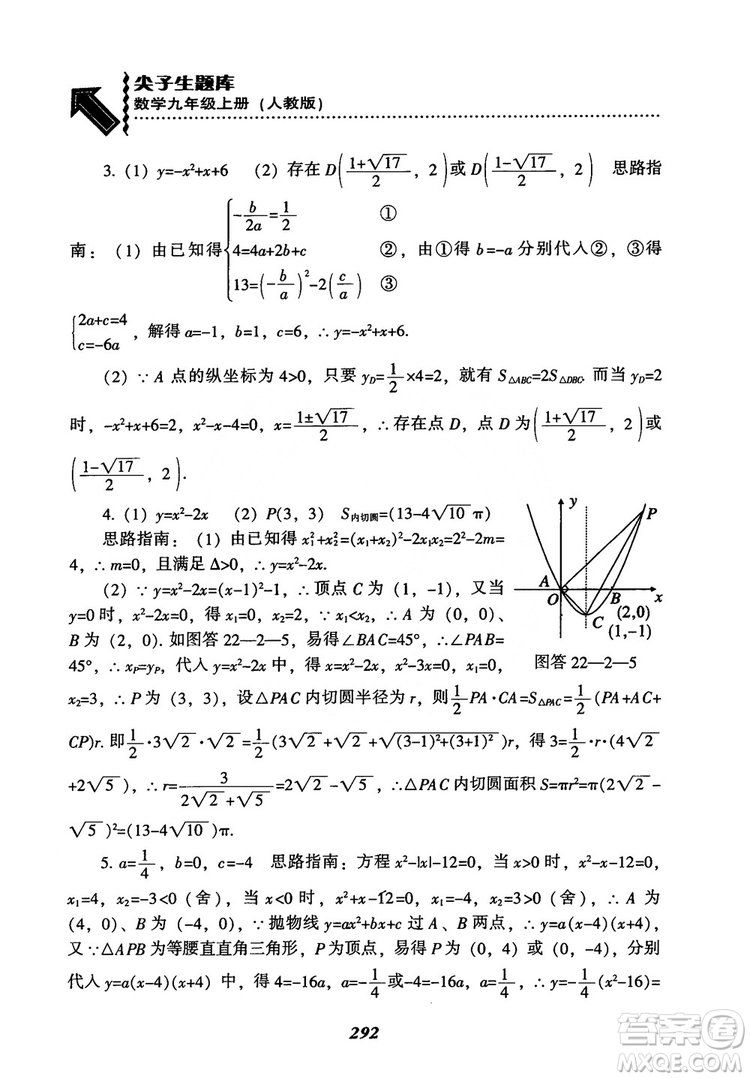 尖子生题库
数学九年级上册（人教版）
3. (1) y=-x²+x+6 (2) 存在 D((1+√17)/2, 2)或 D((1-√17)/2, 2) 思路指
南：(1) 由已知得{-b/2a=1/2 ① 4=4a+2b+c ② 13=(-b/a)²-2(c/a) ③，由①得 b=-a 分别代人②，③得
{2a+c=4 c=-6a，解得 a=-1，b=1，c=6，∴ y=-x²+x+6.
(2) ∵ A 点的纵坐标为 4>0，只要 y_D=1/2×4=2，就有 S△ABC=2S△DBC. 而当 y_D=2
时，-x²+x+6=2，x²-x-4=0，x=(1±√17)/2，∴ 存在点 D，点 D 为((1+√17)/2, 2)或
((1-√17)/2, 2).
4. (1) y=x²-2x (2) P(3, 3) S内切圆=(13-4√10)π
思路指南：(1) 由已知得 x₁²+x₂²=(x₁+x₂)²-2x₁x₂=2²-2m=
4，∴ m=0，且满足 Δ>0，∴ y=x²-2x.
(2) ∵ y=x²-2x=(x-1)²-1，∴ 顶点 C 为 (1, -1)，又当
y=0 时，x²-2x=0，得 x₁=0，x₂=2，∵ x₁<x₂，∴ A 为 (0, 0)，
B 为 (2, 0). 如图答 22—2—5，易得∠BAC=45°，∴∠PAB=
45°，∴ x_P=y_P，代人 y=x²-2x 中，得 x=x²-2x，x₁=0，
x₂=3，∴ P 为 (3, 3)，设△PAC 内切圆半径为 r，则1/2PA·CA=S△PAC=1/2(PA+AC+
CP)r. 即1/2·3√2·√2=1/2(3√2+√2+√((3-1)²+(3+1)²))r，得 3=1/2·r·(4√2
+2√5)，∴ r=3/(2√2+√5)=2√2-√5，∴△PAC 内切圆面积 S=πr²=π(2√2-
√5)²=(13-4√10)π.
y
P
A
O
B
x
C
(2,0)
(1,-1)
图答 22—2—5
5. a=1/4，b=0，c=-4 思路指南：方程 x²-|x|-12=0，当 x>0 时，x²-x-12=0，
x₁=4，x₂=-3<0（舍），当 x<0 时，x²+x-12=0，x₁=-4，x₂=3>0（舍），∴ A 为
(4, 0)，B 为 (-4, 0)，∵ 抛物线 y=ax²+bx+c 过 A、B 两点，∴ y=a(x-4)(x+4)，
又∵△APB 为等腰直直角三角形，P 为顶点，易得 P 为 (0, 4) 或 (0, -4)，分别
代人 y=a(x-4)(x+4) 中，得 4=-16a，a=-1/4或-4=-16a，a=1/4，∴ y=-1/4(x-4)(x+
292
答案圈
MXQE.COM